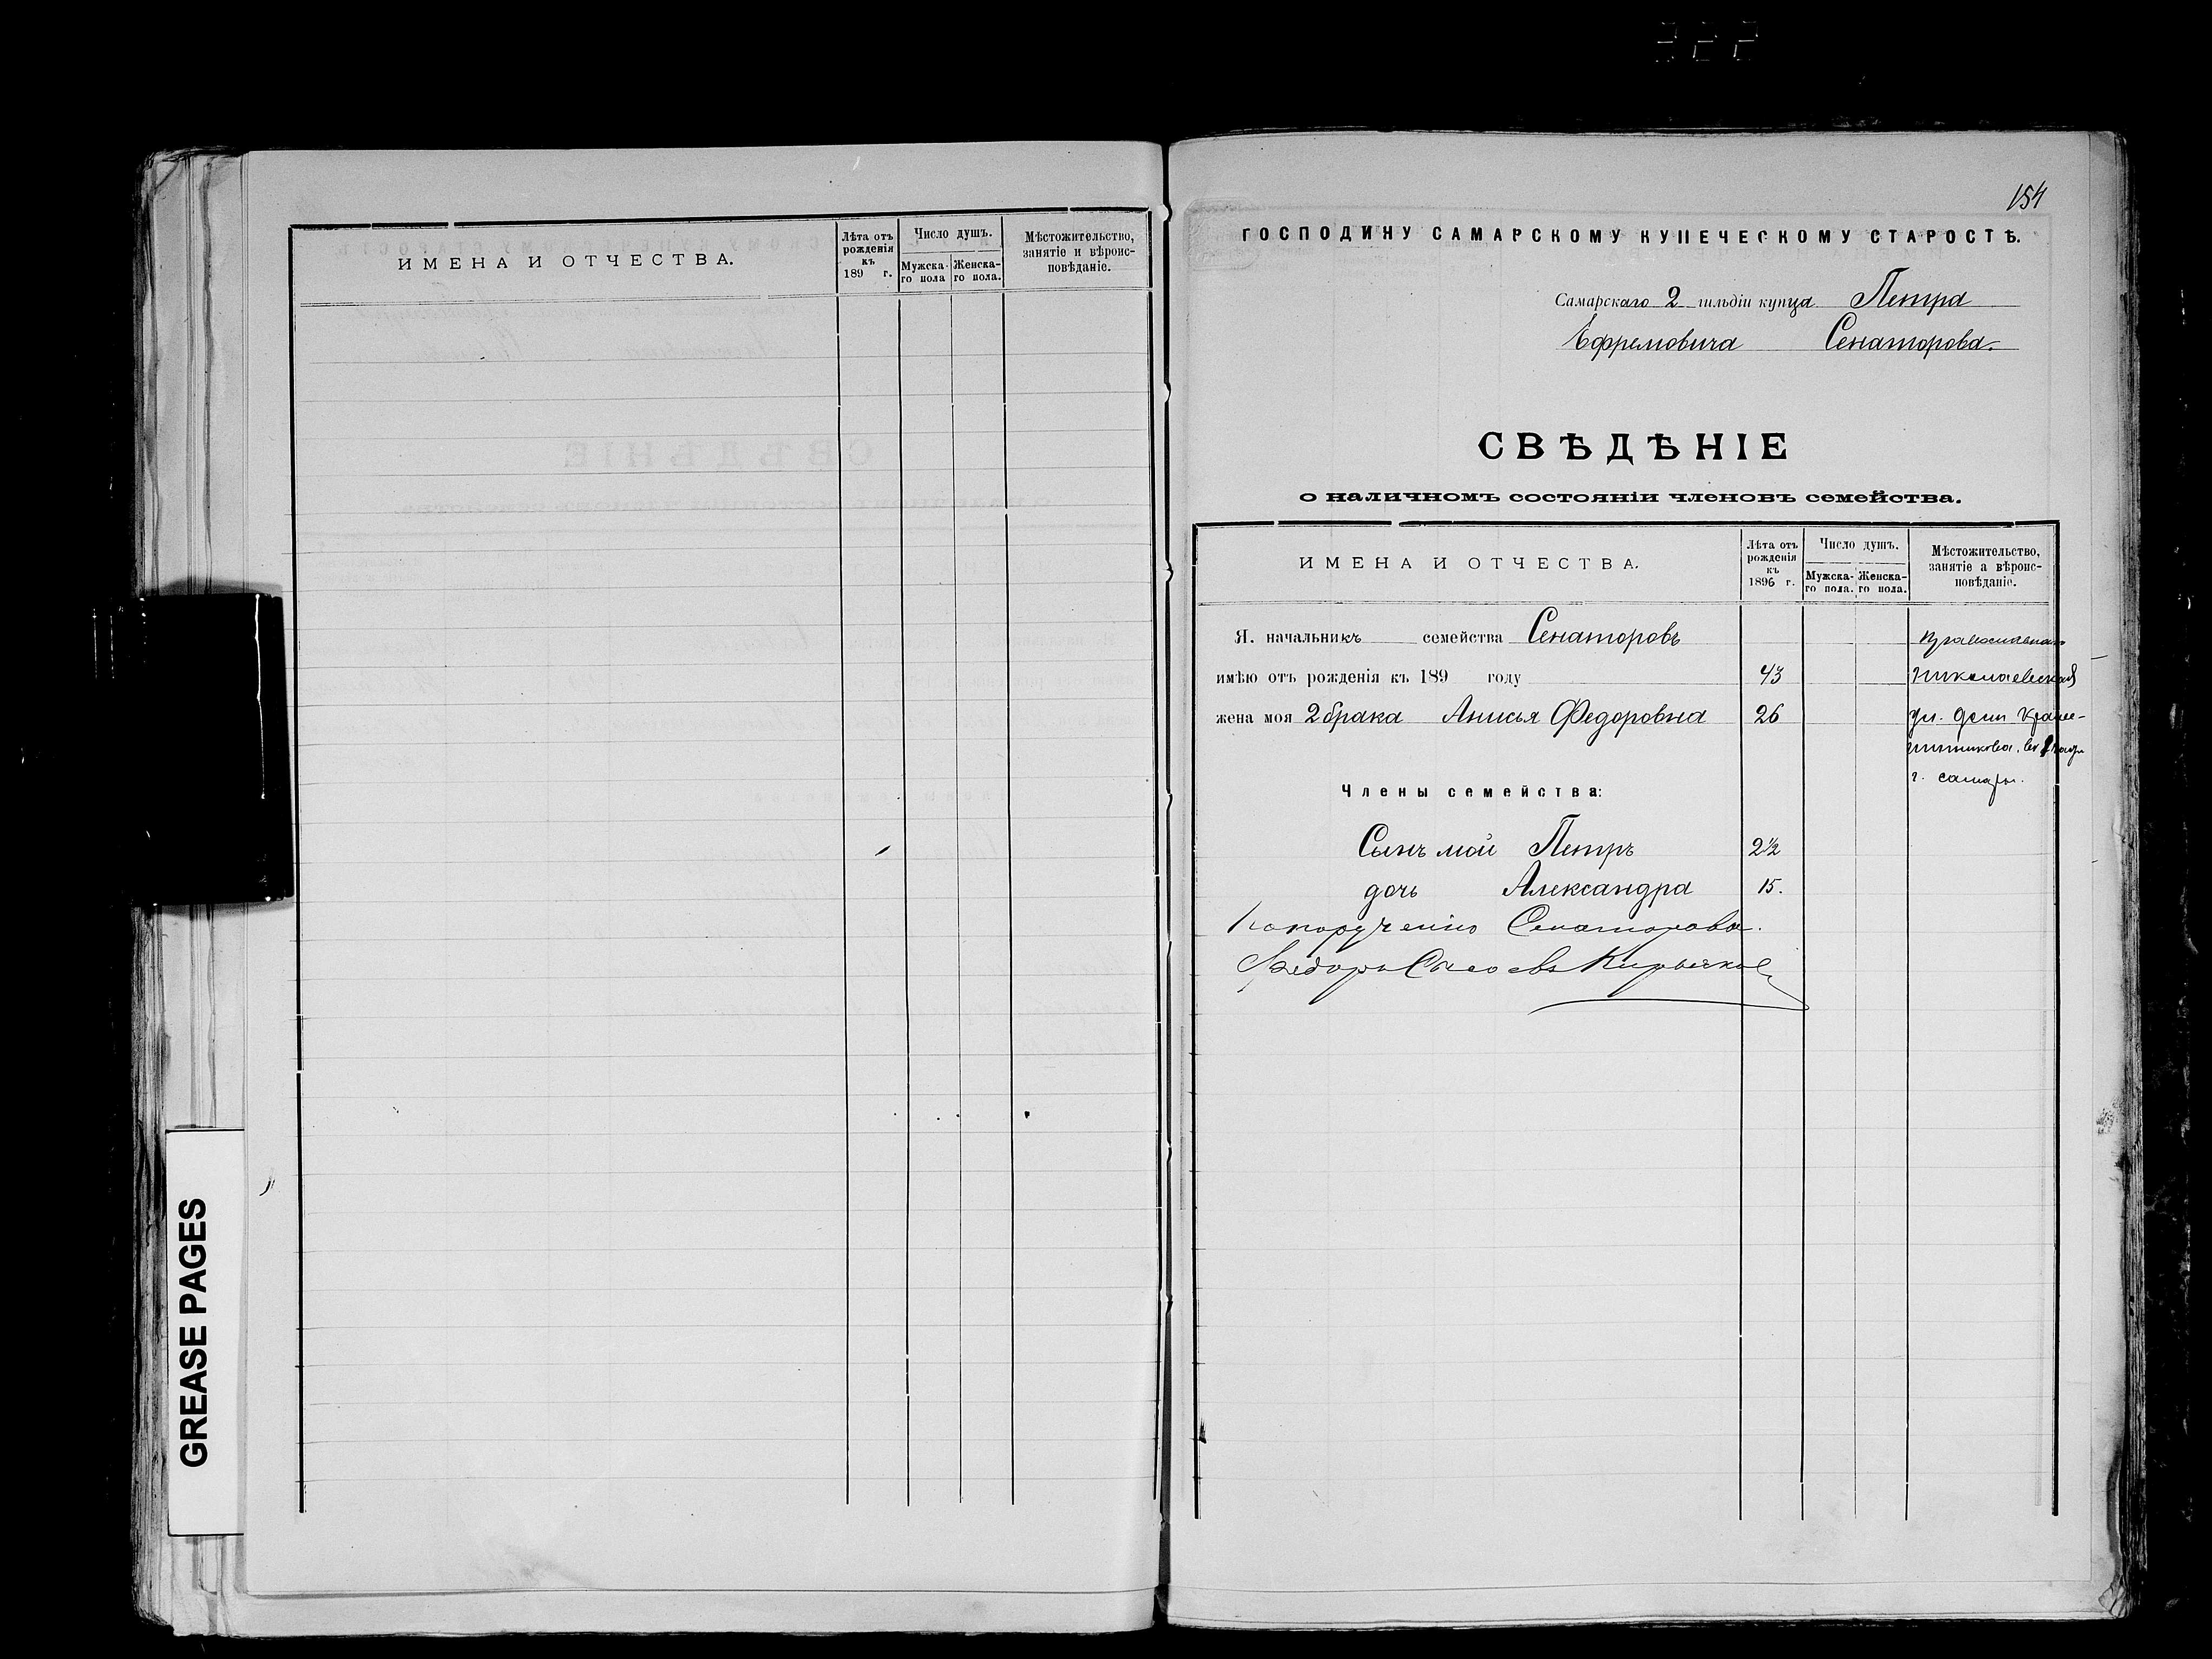 154
ИМЕНА И ОТЧЕСТВА.
Лѣта отъ рожденія къ 189 г.
Число душъ.
Мужска-го пола
Женска-го пола.
Мѣстожительство, занятіе и вѣроис-повѣданіе.
GREASE PAGES
ГОСПОДИНУ САМАРСКОМУ КУПЕЧЕСКОМУ СТАРОСТѢ.
Самарскаго 2 гильдіи купца Петра
Ефремовича Сенаторова.
СВѢДѢНІЕ
о наличномъ состояніи членовъ семейства.
ИМЕНА И ОТЧЕСТВА.
Лѣта отъ рожденія къ 1896 г.
Число душъ.
Мужска-го пола.
Женска-го пола.
Мѣстожительство, занятіе а вѣроис-повѣданіе.
Я. начальникъ семейства Сенаторовъ
имѣю отъ рожденія къ 189 году 43 Николаевская
жена моя 2 брака Анисья Федоровна 26 ул. домъ
г. Самары.
Члены семейства:
Сынъ мой Петръ 2½
дочь Александра 15.
По порученію Сенаторова.
Федоръ Сысоевъ Кирьяков